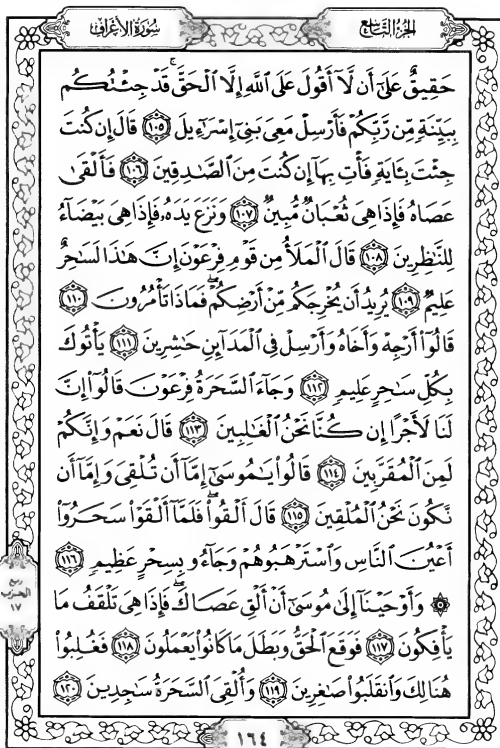 سُورَةُ الأَعْرَافِ
الجُزْءُ التَّاسِعُ
حَقِيقٌ عَلَىٰٓ أَن لَّآ أَقُولَ عَلَى ٱللَّهِ إِلَّا ٱلْحَقَّ ۚ قَدْ جِئْتُكُم
بِبَيِّنَةٍ مِّن رَّبِّكُمْ فَأَرْسِلْ مَعِىَ بَنِىٓ إِسْرَٰٓءِيلَ ١٠٥ قَالَ إِن كُنتَ
جِئْتَ بِـَٔايَةٍ فَأْتِ بِهَآ إِن كُنتَ مِنَ ٱلصَّٰدِقِينَ ١٠٦ فَأَلْقَىٰ
عَصَاهُ فَإِذَا هِىَ ثُعْبَانٌ مُّبِينٌ ١٠٧ وَنَزَعَ يَدَهُۥ فَإِذَا هِىَ بَيْضَآءُ
لِلنَّٰظِرِينَ ١٠٨ قَالَ ٱلْمَلَأُ مِن قَوْمِ فِرْعَوْنَ إِنَّ هَٰذَا لَسَٰحِرٌ
عَلِيمٌ ١٠٩ يُرِيدُ أَن يُخْرِجَكُم مِّنْ أَرْضِكُمْ ۖ فَمَاذَا تَأْمُرُونَ ١١٠
قَالُوٓا۟ أَرْجِهْ وَأَخَاهُ وَأَرْسِلْ فِى ٱلْمَدَآئِنِ حَٰشِرِينَ ١١١ يَأْتُوكَ
بِكُلِّ سَٰحِرٍ عَلِيمٍ ١١٢ وَجَآءَ ٱلسَّحَرَةُ فِرْعَوْنَ قَالُوٓا۟ إِنَّ
لَنَا لَأَجْرًا إِن كُنَّا نَحْنُ ٱلْغَٰلِبِينَ ١١٣ قَالَ نَعَمْ وَإِنَّكُمْ
لَمِنَ ٱلْمُقَرَّبِينَ ١١٤ قَالُوا۟ يَٰمُوسَىٰٓ إِمَّآ أَن تُلْقِىَ وَإِمَّآ أَن
نَّكُونَ نَحْنُ ٱلْمُلْقِينَ ١١٥ قَالَ أَلْقُوا۟ ۖ فَلَمَّآ أَلْقَوْا۟ سَحَرُوٓا۟
أَعْيُنَ ٱلنَّاسِ وَٱسْتَرْهَبُوهُمْ وَجَآءُو بِسِحْرٍ عَظِيمٍ ١١٦
۞ وَأَوْحَيْنَآ إِلَىٰ مُوسَىٰٓ أَنْ أَلْقِ عَصَاكَ ۖ فَإِذَا هِىَ تَلْقَفُ مَا
يَأْفِكُونَ ١١٧ فَوَقَعَ ٱلْحَقُّ وَبَطَلَ مَا كَانُوا۟ يَعْمَلُونَ ١١٨ فَغُلِبُوا۟
هُنَالِكَ وَٱنقَلَبُوا۟ صَٰغِرِينَ ١١٩ وَأُلْقِىَ ٱلسَّحَرَةُ سَٰجِدِينَ ١٢٠
ربع
الحزب
١٧
١٦٤